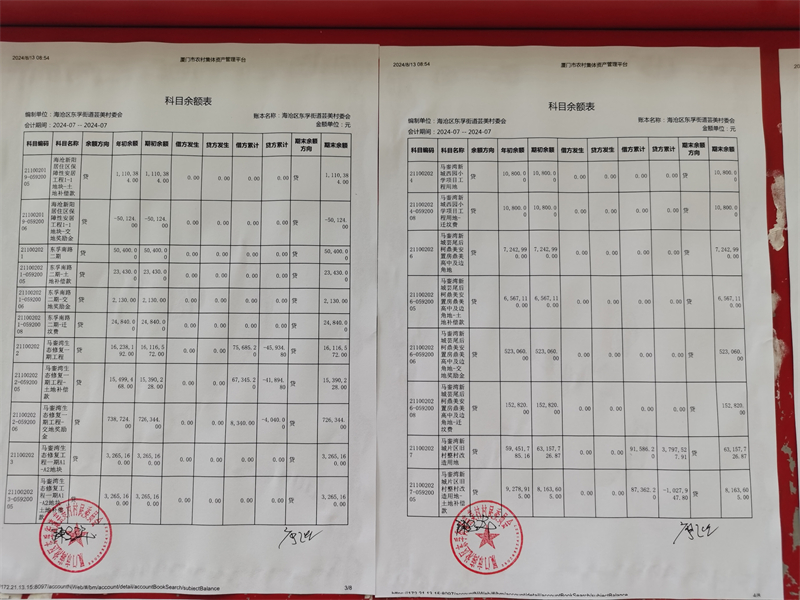 2024/8/13 08:54
厦门市农村集体资产管理平台
科目余额表
编制单位：海沧区东孚街道芸美村委会
账本名称：海沧区东孚街道芸美村委会
会计期间：2024-07 -- 2024-07
金额单位：元
科目编码 科目名称 余额方向 年初余额 期初余额 借方发生 贷方发生 借方累计 贷方累计 期末余额方向 期末余额
211002019-05920005 海沧新阳居住区保障性安居工程1-1地块-土地补偿款 贷 1,110,384.00 1,110,384.00 0.00 0.00 0.00 0.00 贷 1,110,384.00
211002019-05920006 海沧新阳居住区保障性安居工程1-1地块-交地奖励金 贷 -50,124.00 -50,124.00 0.00 0.00 0.00 0.00 贷 -50,124.00
211002021 东孚南路二期 贷 50,400.00 50,400.00 0.00 0.00 0.00 0.00 贷 50,400.00
211002021-05920005 东孚南路二期-土地补偿款 贷 23,430.00 23,430.00 0.00 0.00 0.00 0.00 贷 23,430.00
211002021-05920006 东孚南路二期-交地奖励金 贷 2,130.00 2,130.00 0.00 0.00 0.00 0.00 贷 2,130.00
211002021-05920008 东孚南路二期-迁坟费 贷 24,840.00 24,840.00 0.00 0.00 0.00 0.00 贷 24,840.00
211002022 马銮湾生态修复一期工程 贷 16,238,192.00 16,116,572.00 0.00 0.00 75,685.20 -45,934.80 贷 16,116,572.00
211002022-05920005 马銮湾生态修复一期工程-土地补偿款 贷 15,499,468.00 15,390,228.00 0.00 0.00 67,345.20 -41,894.80 贷 15,390,228.00
211002022-05920006 马銮湾生态修复一期工程-交地奖励金 贷 738,724.00 726,344.00 0.00 0.00 8,340.00 -4,040.00 贷 726,344.00
211002023 马銮湾生态修复工程一期A1-A2地块 贷 3,265,160.00 3,265,160.00 0.00 0.00 0.00 0.00 贷 3,265,160.00
211002023-05920005 马銮湾生态修复工程一期A1-A2地块-土地补偿款 贷 3,265,160.00 3,265,160.00 0.00 0.00 0.00 0.00 贷 3,265,160.00
172.21.13.15:8097/accountNWeb/#/bm/account/detail/accountBookSearch/subjectBalance
3/8
2024/8/13 08:54
厦门市农村集体资产管理平台
科目余额表
编制单位：海沧区东孚街道芸美村委会
账本名称：海沧区东孚街道芸美村委会
会计期间：2024-07 -- 2024-07
金额单位：元
科目编码 科目名称 余额方向 年初余额 期初余额 借方发生 贷方发生 借方累计 贷方累计 期末余额方向 期末余额
211002024 马銮湾新城西园小学项目工程用地 贷 10,800.00 10,800.00 0.00 0.00 0.00 0.00 贷 10,800.00
211002024-05920008 马銮湾新城西园小学项目工程用地-迁坟费 贷 10,800.00 10,800.00 0.00 0.00 0.00 0.00 贷 10,800.00
211002026 马銮湾新城芸尾后柯鼎美安置房鼎美高中及边角地 贷 7,242,990.00 7,242,990.00 0.00 0.00 0.00 0.00 贷 7,242,990.00
211002026-05920005 马銮湾新城芸尾后柯鼎美安置房鼎美高中及边角地-土地补偿款 贷 6,567,110.00 6,567,110.00 0.00 0.00 0.00 0.00 贷 6,567,110.00
211002026-05920006 马銮湾新城芸尾后柯鼎美安置房鼎美高中及边角地-交地奖励金 贷 523,060.00 523,060.00 0.00 0.00 0.00 0.00 贷 523,060.00
211002026-05920008 马銮湾新城芸尾后柯鼎美安置房鼎美高中及边角地-迁坟费 贷 152,820.00 152,820.00 0.00 0.00 0.00 0.00 贷 152,820.00
211002027 马銮湾新城片区旧村整村改造用地 贷 59,451,785.16 63,157,726.87 0.00 0.00 91,586.20 3,797,527.91 贷 63,157,726.87
211002027-05920005 马銮湾新城片区旧村整村改造用地-土地补偿款 贷 9,278,915.00 8,163,605.00 0.00 0.00 87,362.20 -1,027,947.80 贷 8,163,605.00
172.21.13.15:8097/accountNWeb/#/bm/account/detail/accountBookSearch/subjectBalance
4/8